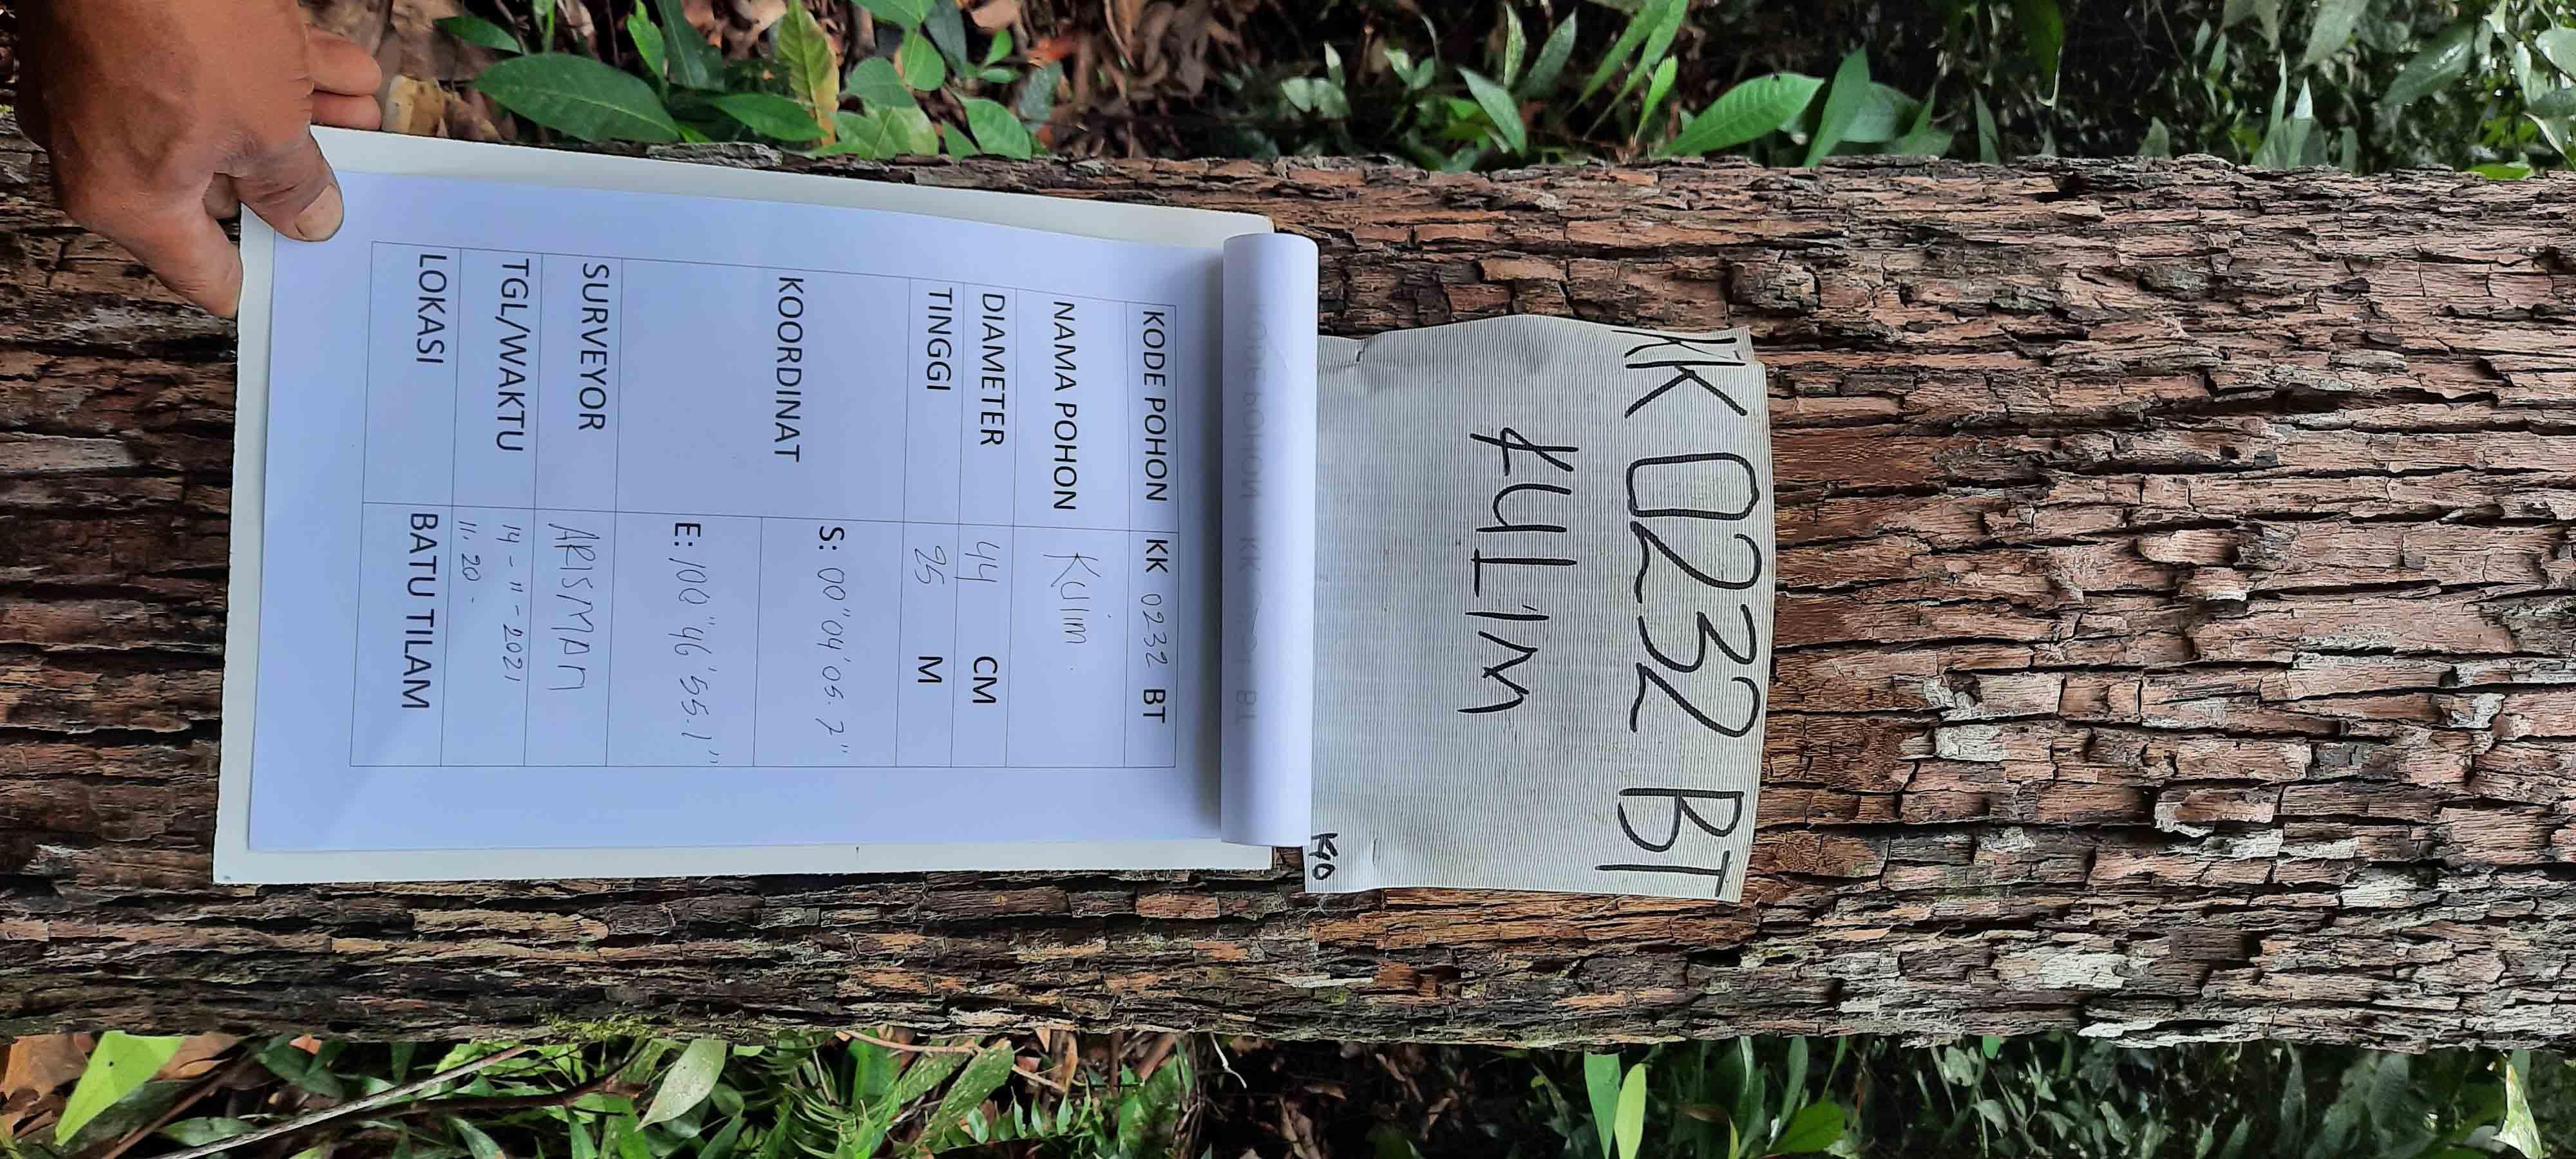 KK 0232 BT
KULIM
K40
KODE POHON KK 0232 BT
NAMA POHON Kulim.
DIAMETER 44 CM
TINGGI 25 M
KOORDINAT S: 00" 04' 05.7"
E: 100" 46' 55.1"
SURVEYOR ARISMAN
TGL/WAKTU 14-11-2021
11.20.
LOKASI BATU TILAM